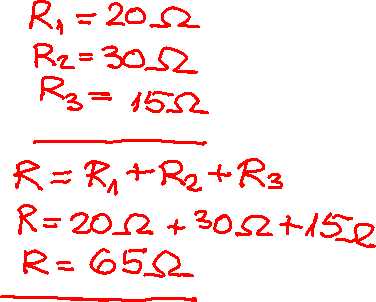 R₁ = 20Ω
R₂ = 30Ω
R₃ = 15Ω
R = R₁ + R₂ + R₃
R = 20Ω + 30Ω + 15Ω
R = 65Ω